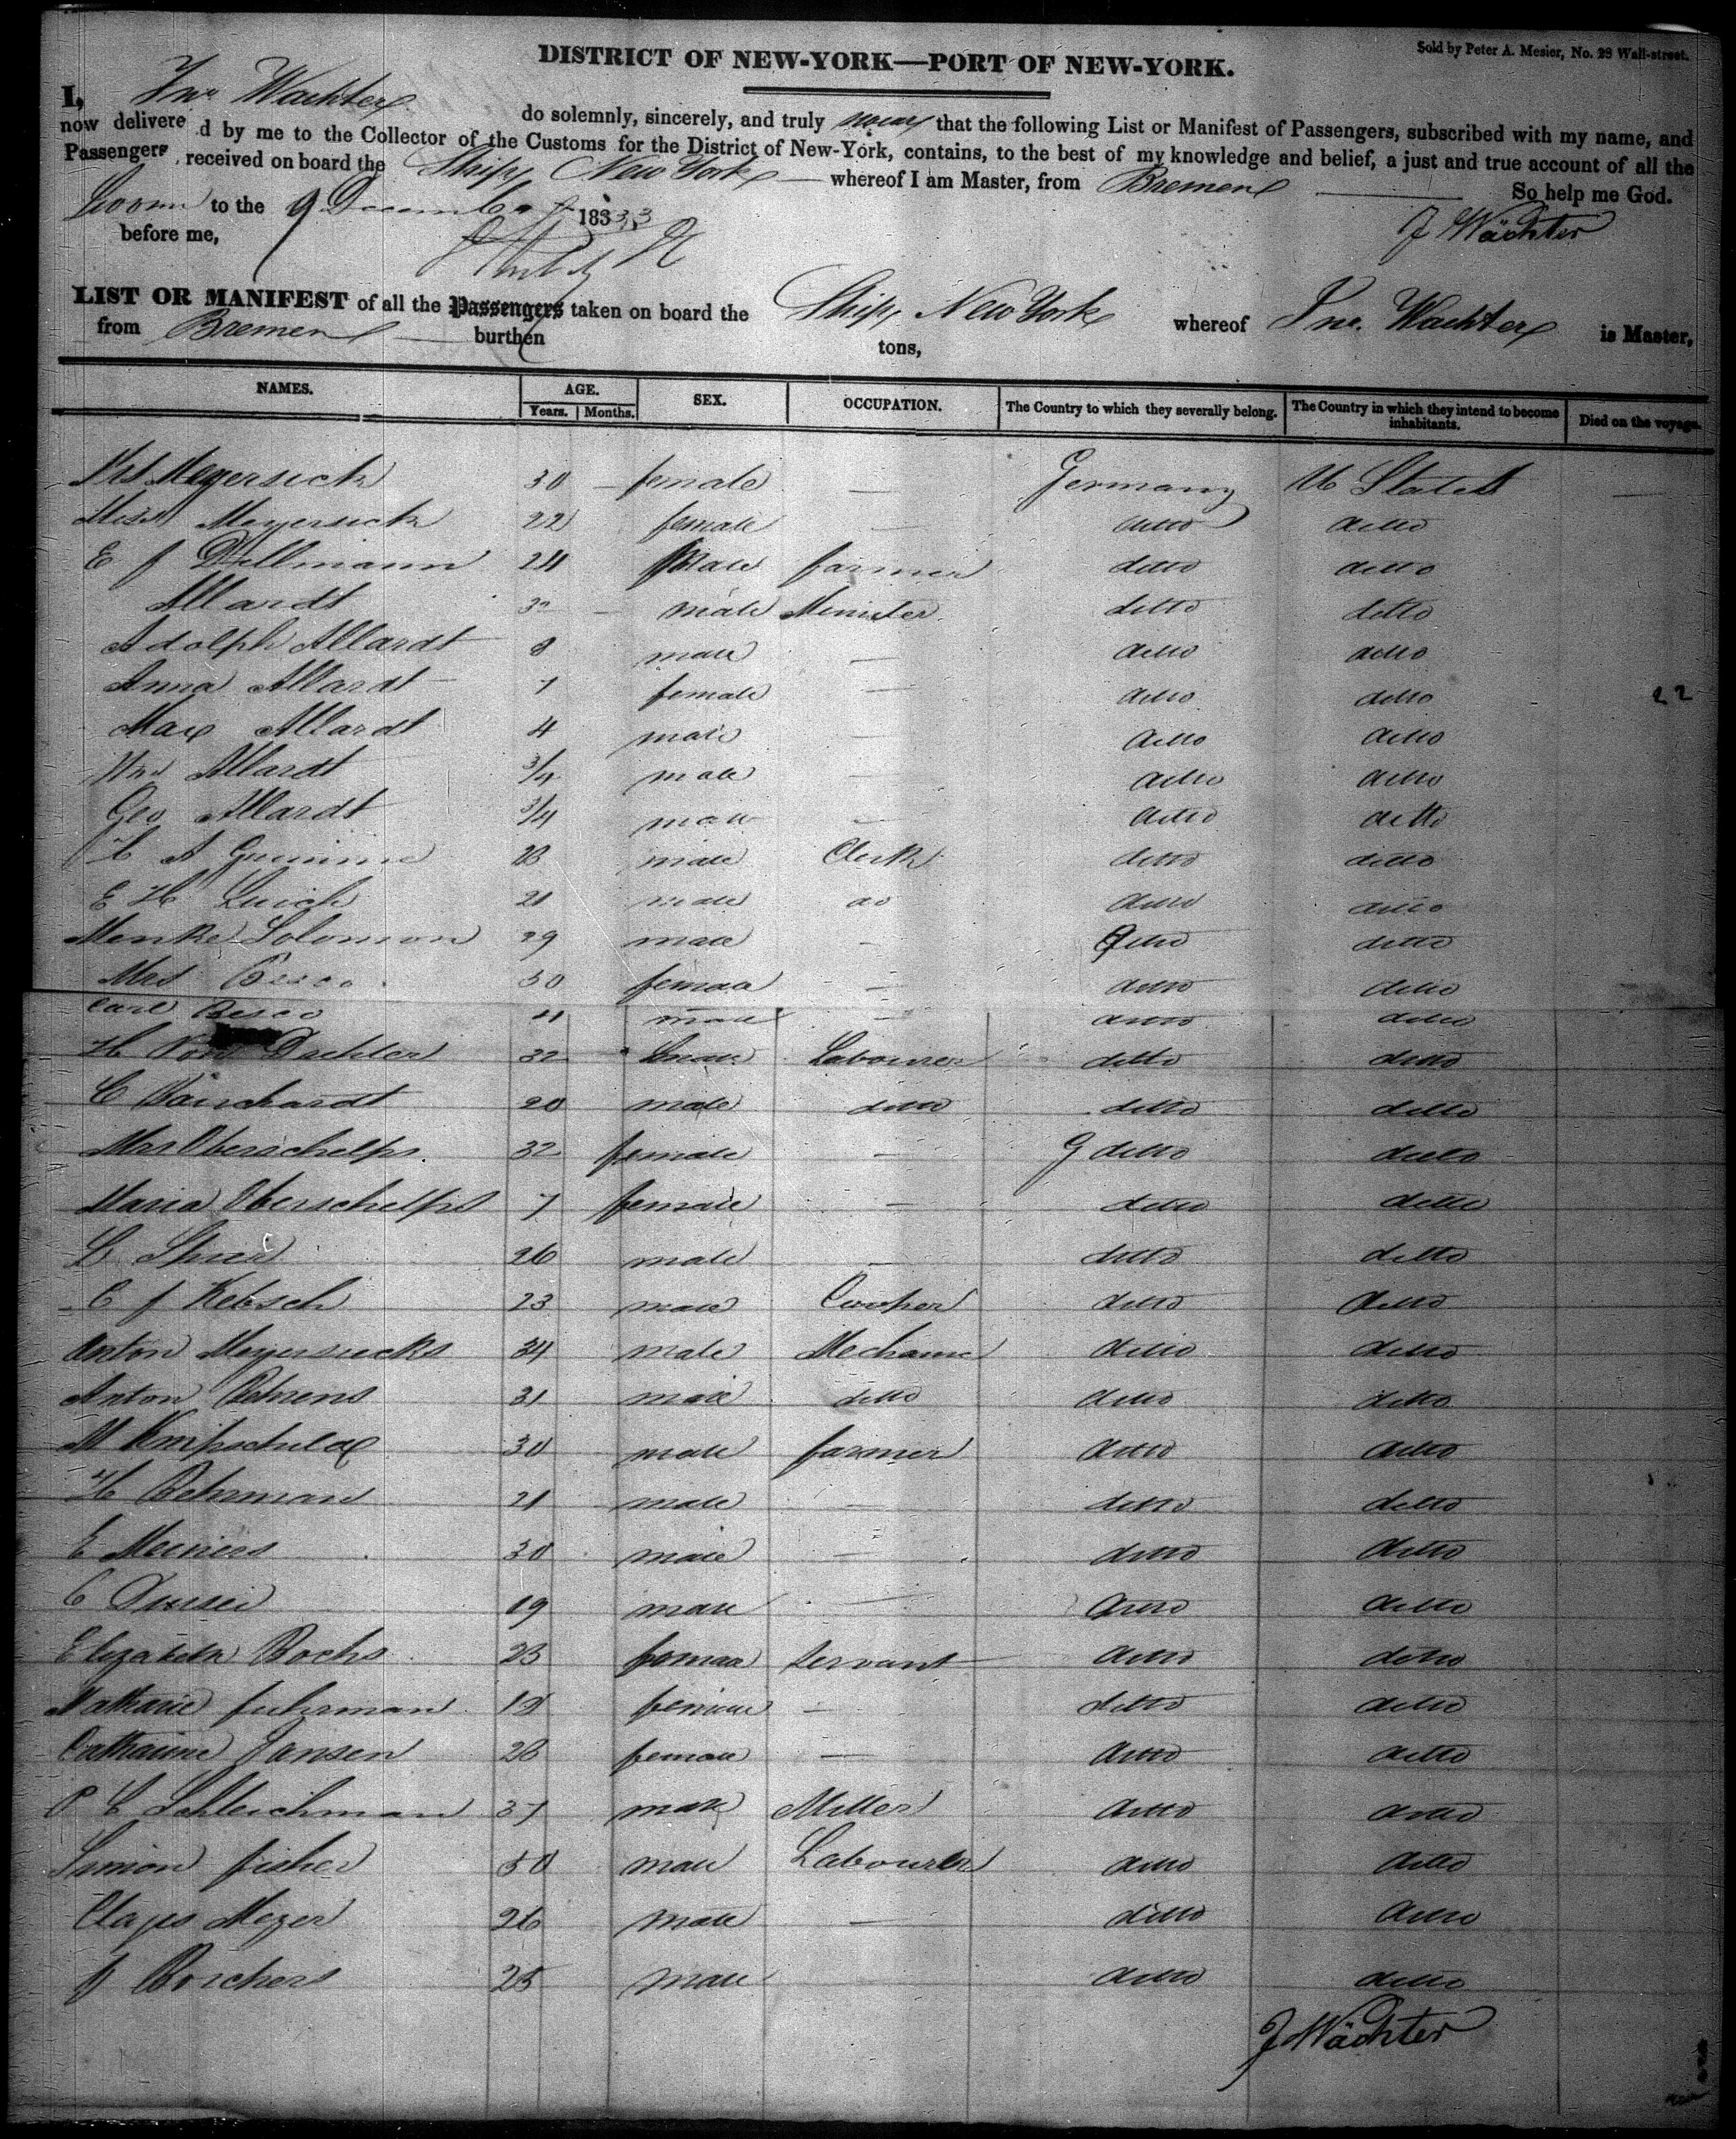 Sold by Peter A. Mesier, No. 28 Wall-street.
DISTRICT OF NEW-YORK—PORT OF NEW-YORK.
I, Jno. Wachter do solemnly, sincerely, and truly swear that the following List or Manifest of Passengers, subscribed with my name, and
now delivered by me to the Collector of the Customs for the District of New-York, contains, to the best of my knowledge and belief, a just and true account of all the
Passengers received on board the Ship New York whereof I am Master, from Bremen
So help me God.
Sworn to the 9 December 1833
before me,
J Wächter
LIST OR MANIFEST of all the Passengers taken on board the Ship New York whereof Jno. Wachter is Master,
from Bremen burthen tons,
NAMES. AGE. SEX. OCCUPATION. The Country to which they severally belong. The Country in which they intend to become inhabitants. Died on the voyage.
Years. Months.
Mrs Meyersick 30 — female — Germany U States —
Miss Meyersick 22 female — ditto ditto
E J 24 male farmer ditto ditto
Allardt — male Minister ditto ditto
Adolph Allardt 8 male — ditto ditto
Anna Allardt 7 female — ditto ditto
22
Max Allardt 4 male — ditto ditto
Allardt 3/4 male — ditto ditto
Geo Allardt 3/4 male — ditto ditto
A 23 male Clerk ditto ditto
E H 21 male do ditto ditto
Menke Solomon 29 male - ditto ditto
Mrs 30 female - ditto ditto
Carl male - ditto ditto
H Von 32 male Labourer ditto ditto
C 20 male ditto ditto ditto
Mrs Oberschelps 32 female — ditto ditto
Maria Oberschelps 7 female — ditto ditto
26 male — ditto ditto
C J Kebsch 23 male Cooper ditto ditto
Anton Meyersicks 34 male Mechanic ditto ditto
Anton Behrens 31 male ditto ditto ditto
M Knipschild 30 male farmer ditto ditto
H Behrman 21 male — ditto ditto
E Meiners 30 male — ditto ditto
C 19 male — ditto ditto
Elizabeth Bochs 23 female servant ditto ditto
fuhrman female — ditto ditto
Catharine Jansen 28 female — ditto ditto
Schleichman 37 male Miller ditto ditto
Simon fisher 50 male Labourer ditto ditto
Claus Meyer 26 male — ditto ditto
Borchers 25 male ditto ditto
J Wächter